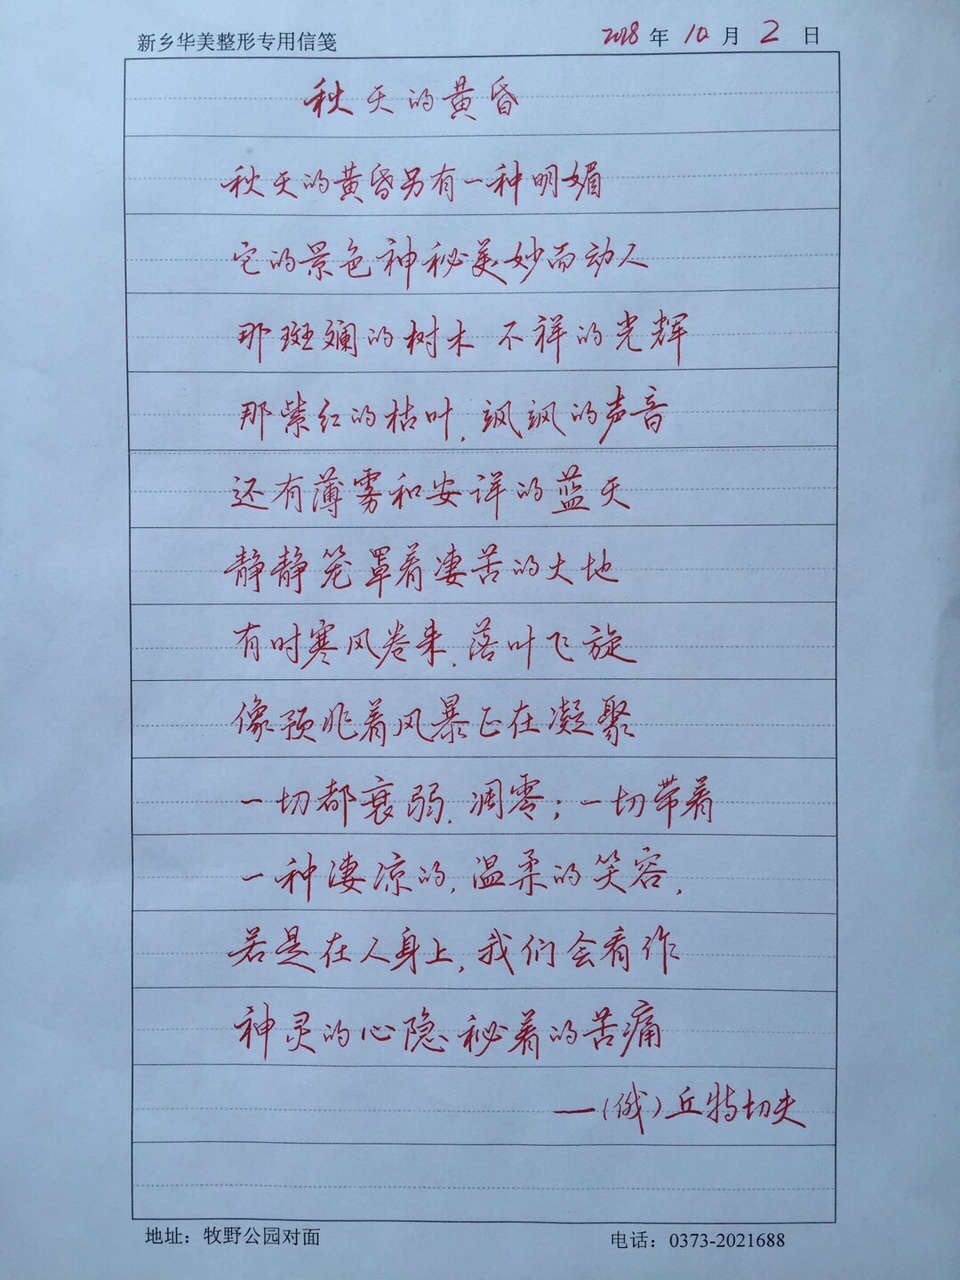 新乡华美整形专用信笺
2018年10月2日
秋天的黄昏
秋天的黄昏另有一种明媚
它的景色神秘美妙而动人
那斑斓的树木 不祥的光辉
那紫红的枯叶,飒飒的声音
还有薄雾和安详的蓝天
静静笼罩着凄苦的大地
有时寒风卷来,落叶飞旋
像预兆着风暴正在凝聚
一切都衰弱,凋零;一切带着
一种凄凉的,温柔的笑容,
若是在人身上,我们会看作
神灵的心隐秘着的苦痛
—(俄)丘特切夫
地址：牧野公园对面
电话：0373-2021688